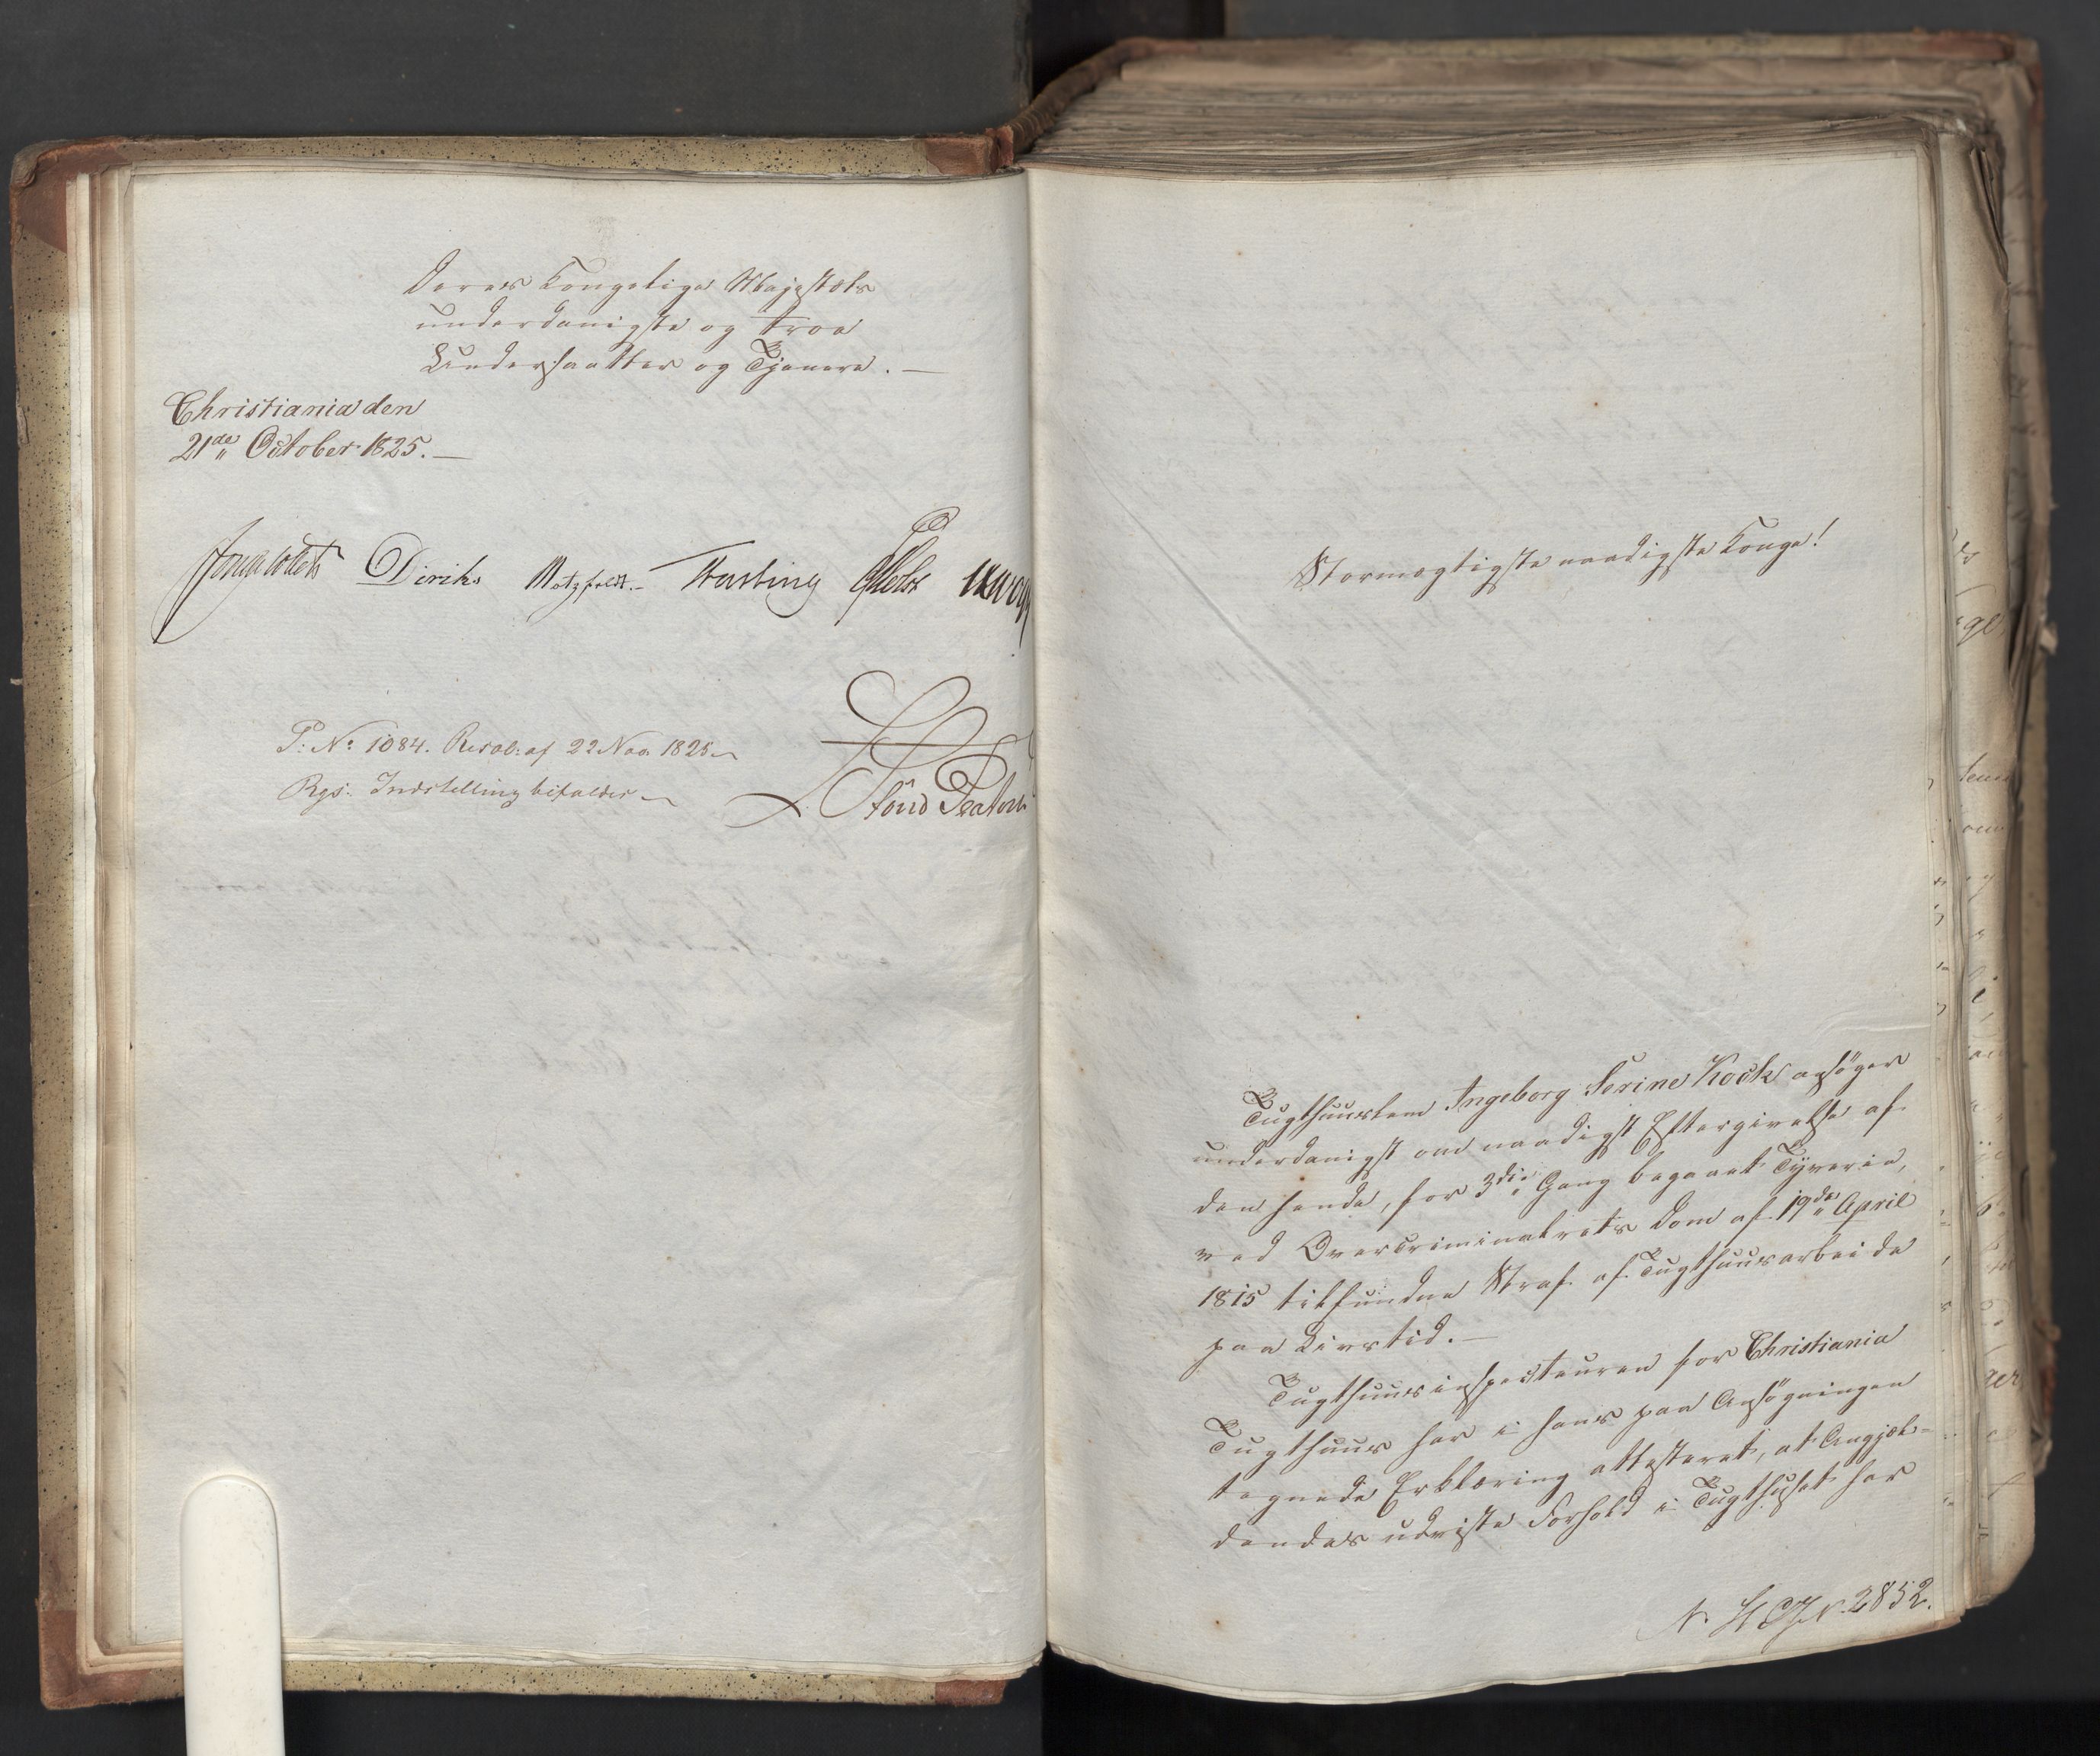 Deres Kongelige Majestæts
underdanigste og troe
Undersaatter og Tjenere. —
Christiania den
21de October 1825. —
Diriks Motzfeldt. —
P: No 1084. Resol: af 22 Nov 1825
Rgs: Indstilling bifaldes
Stormægtigste naadigste Konge!
Tugthuuslem Ingeborg Serine Kock ansøger
underdanigst om naadigst Eftergivelse af
den hende, for 3die Gang begaaet Tyverie,
ved Overcriminalrets Dom af 19de April
1815 tilfundne Straf af Tugthuusarbeide
paa Livstid. —
Tugthuusinspecteuren for Christiania
Tugthuus har i hans paa Ansøgningen
tegnede Erklæring attesteret, at Angjæl-
dendes udviste Forhold i Tugthuset har
2852.